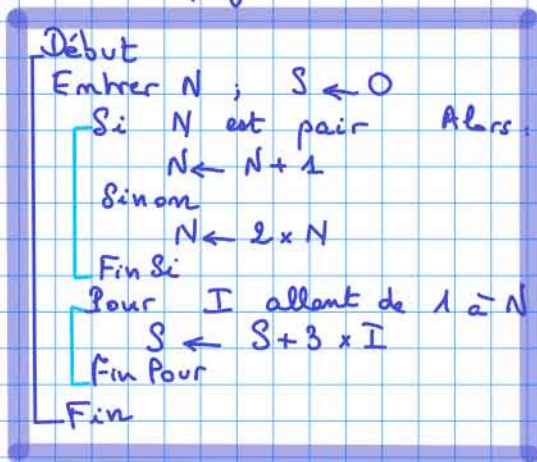 Début
Entrer N ; S ← 0
Si N est pair Alors
N ← N + 1
Sinon
N ← 2 × N
Fin Si
Pour I allant de 1 à N
S ← S + 3 × I
Fin Pour
Fin